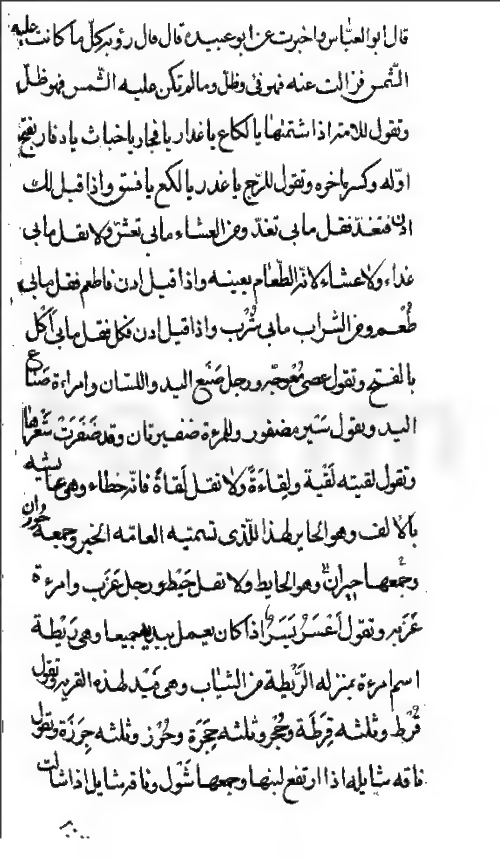 قال ابو العباس واخبرت عن ابو عبيده قال قال رؤبه كل ما كانت عليه
الشمس فزالت عنه فهو فئ وظل وما لم تكن عليه الشمس فهو ظل
وتقول للامة اذا شتمتها يا لكاع يا غدار يا فجار يا خباث يا دفار بفتح
اوله وكسر اخره وتقول للرجل يا غدر يا لكع يا فسق واذا قيل لك
ادن فتغد فقل ما بي تغد ومن العشاء ما بي تعش ولا تقل ما بي
غداء ولا عشاء لانه الطعام بعينه واذا قيل ادن فاطعم فقل ما بي
طُعْم ومن الشراب ما بي شُرْب واذا قيل ادن فكل فقل ما بي اَكْل
بالفتح وتقول عصى مُعْوجّه ورجل صَنَع اليد واللسان وامراءة صَنَاع
اليد ويقول سَيْر مضفور وللمرءة ضفيرتان وقد ضَفَرَتْ شَعْرها
وتقول لقيته لَقْية ولِقاءَةً ولا تقل لَقاةً فانه خطاء وهي عايشه
بالالف وهو الحاير لهذا للذى تسميه العامه الحير وجمعه حُوران
وجمعها حِيران وهو الحايط ولا تقل حَيْط ورجل عَزَب وامرءة
عَزَبه وتقول اَعْسَرُ يَسَرٌ اذا كان يعمل بيديه جميعا وهى رَيْطة
اسم امرءة بمنزله الرَّيْطة من الثياب وهى فَيْد لهذه القريه وتقول
قُرْط وثلثه قِرَطَة وجُحْر وثلثه جِحَرَة وخُرْز وثلثه خِرَزَة وتقول
ناقه شايله اذا ارتفع لبنها وجمعها شَوْل وناقه شايل اذا شالت